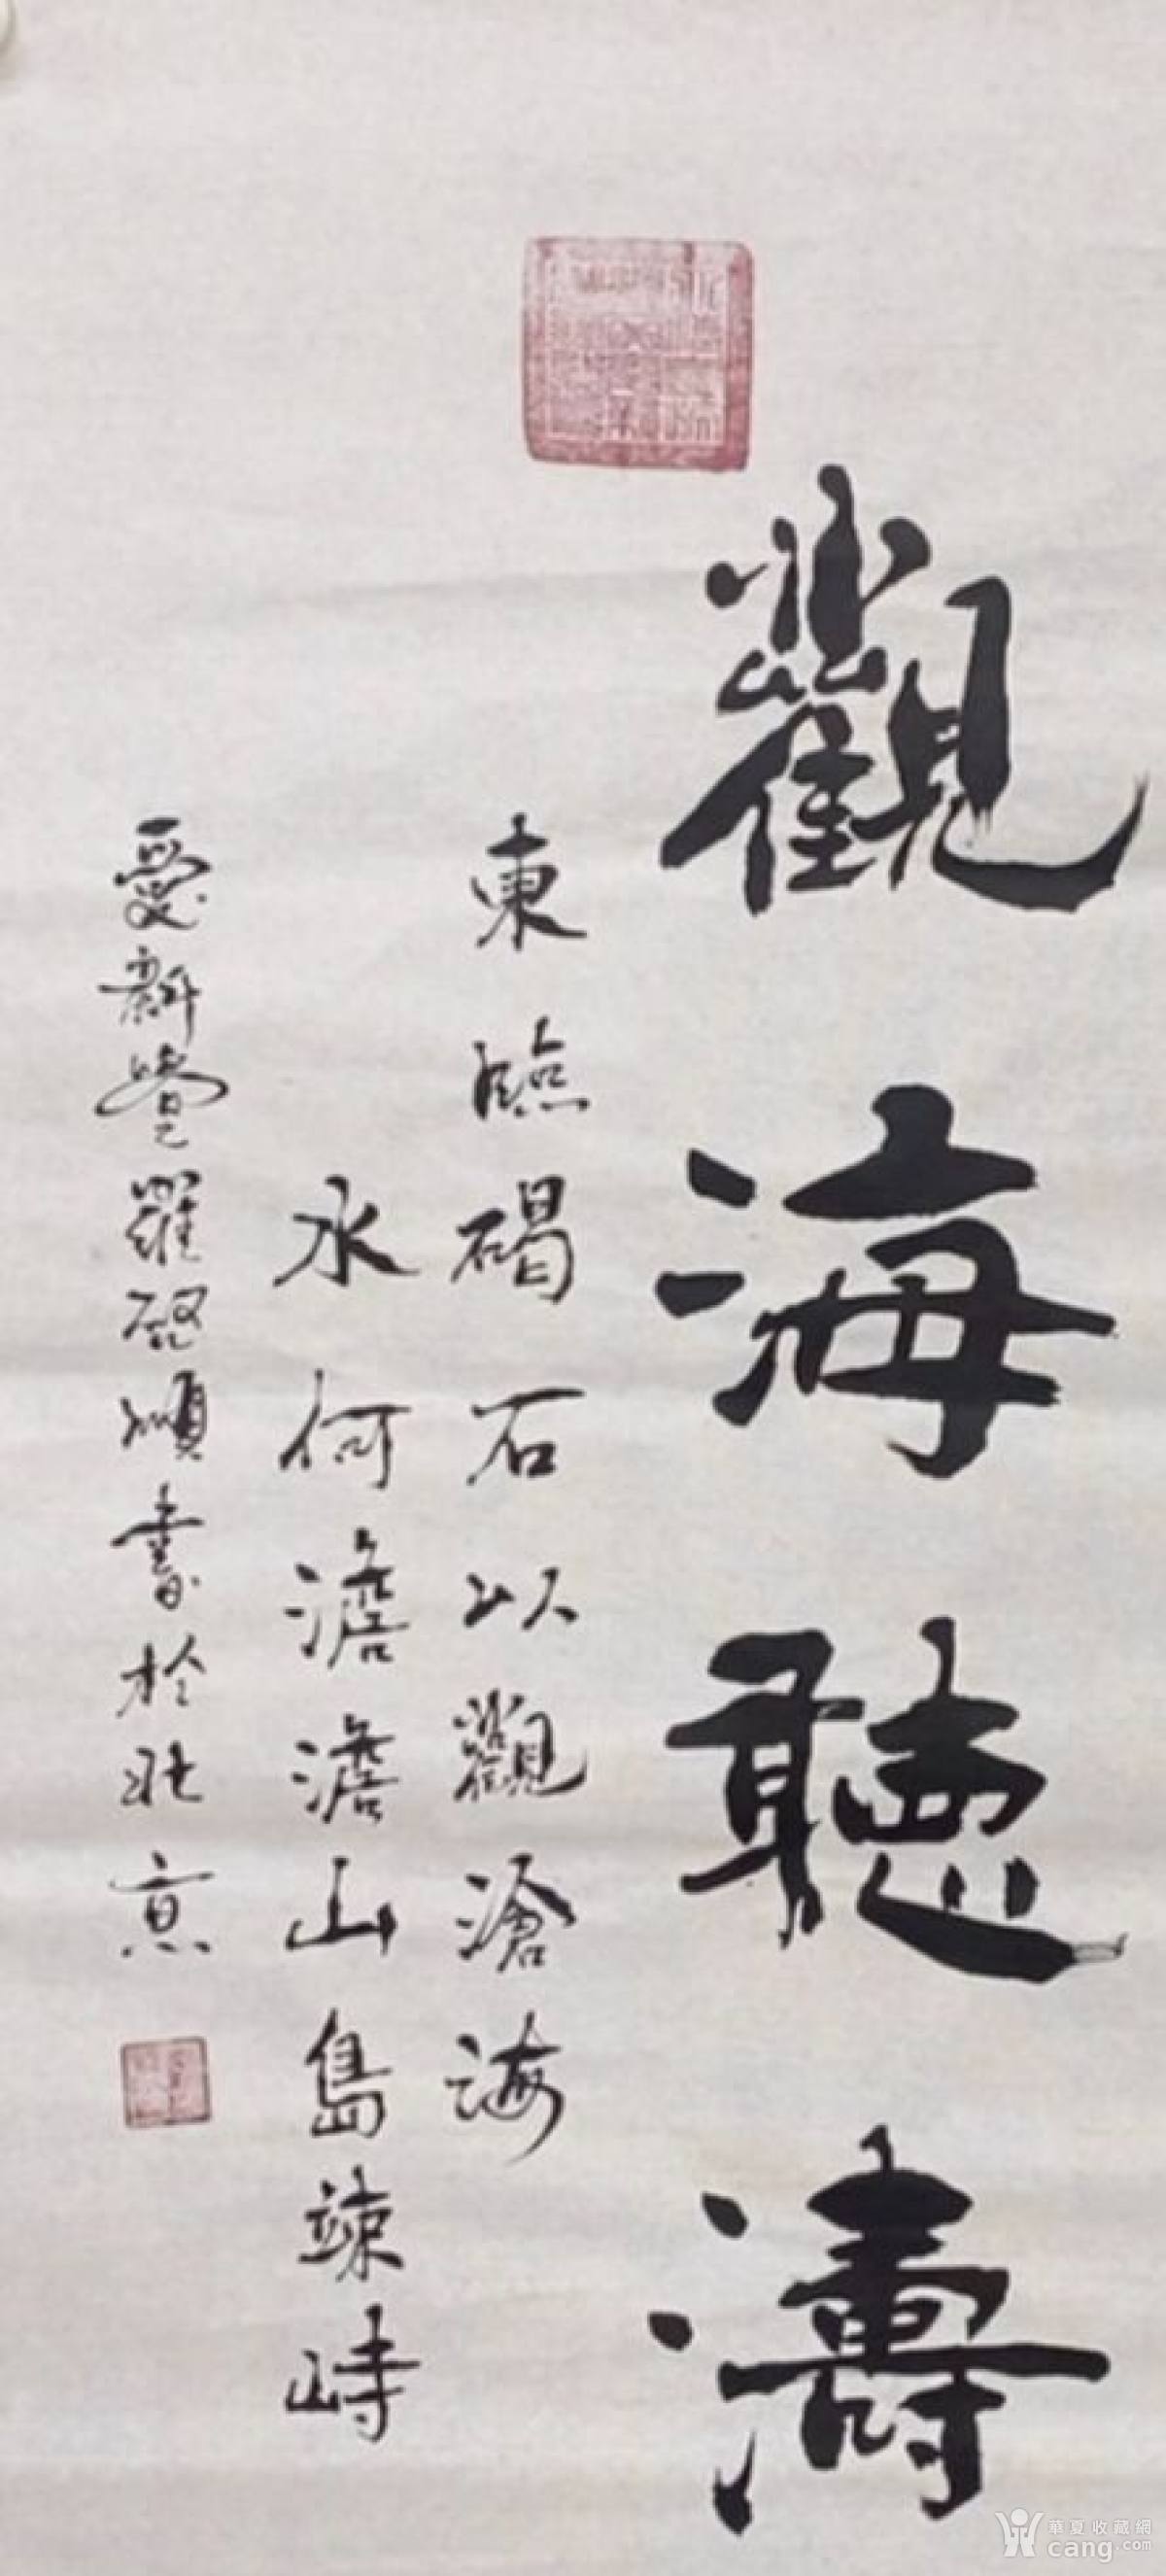 觀海聽濤
東臨碣石以觀滄海
水何澹澹山島竦峙
愛新覺羅啟順書於北京
華夏收藏網
cang.com